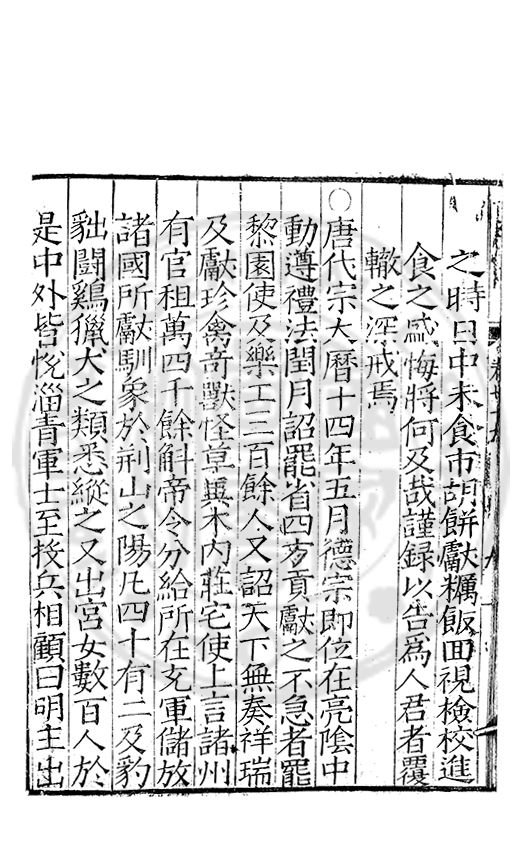 之時日中未食市胡餅獻糲飯回視檢校進
食之盛悔將何及哉謹録以告爲人君者覆
轍之深戒焉
○唐代宗大曆十四年五月德宗即位在亮隂中
動遵禮法閏月詔罷省四方貢獻之不急者罷
黎園使及樂工三百餘人又詔天下無奏祥瑞
及獻珍禽竒獸怪草異木内莊宅使上言諸州
有官租萬四千餘斛帝令分給所在充軍儲放
諸國所獻馴象於荊山之陽凡四十有二及豹
貀鬬鷄獵犬之類悉縱之又出宫女數百人於
是中外皆悅淄青軍士至投兵相顧曰明主出